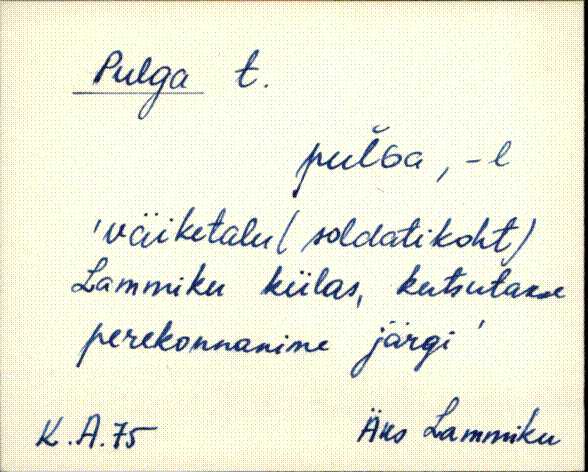 Pulga t.
pul̆Ga, -l
'väiketalu (soldatikoht)
Lammiku külas, kutsutakse
perekonnanime järgi'
K.A.75 Äks Lammiku